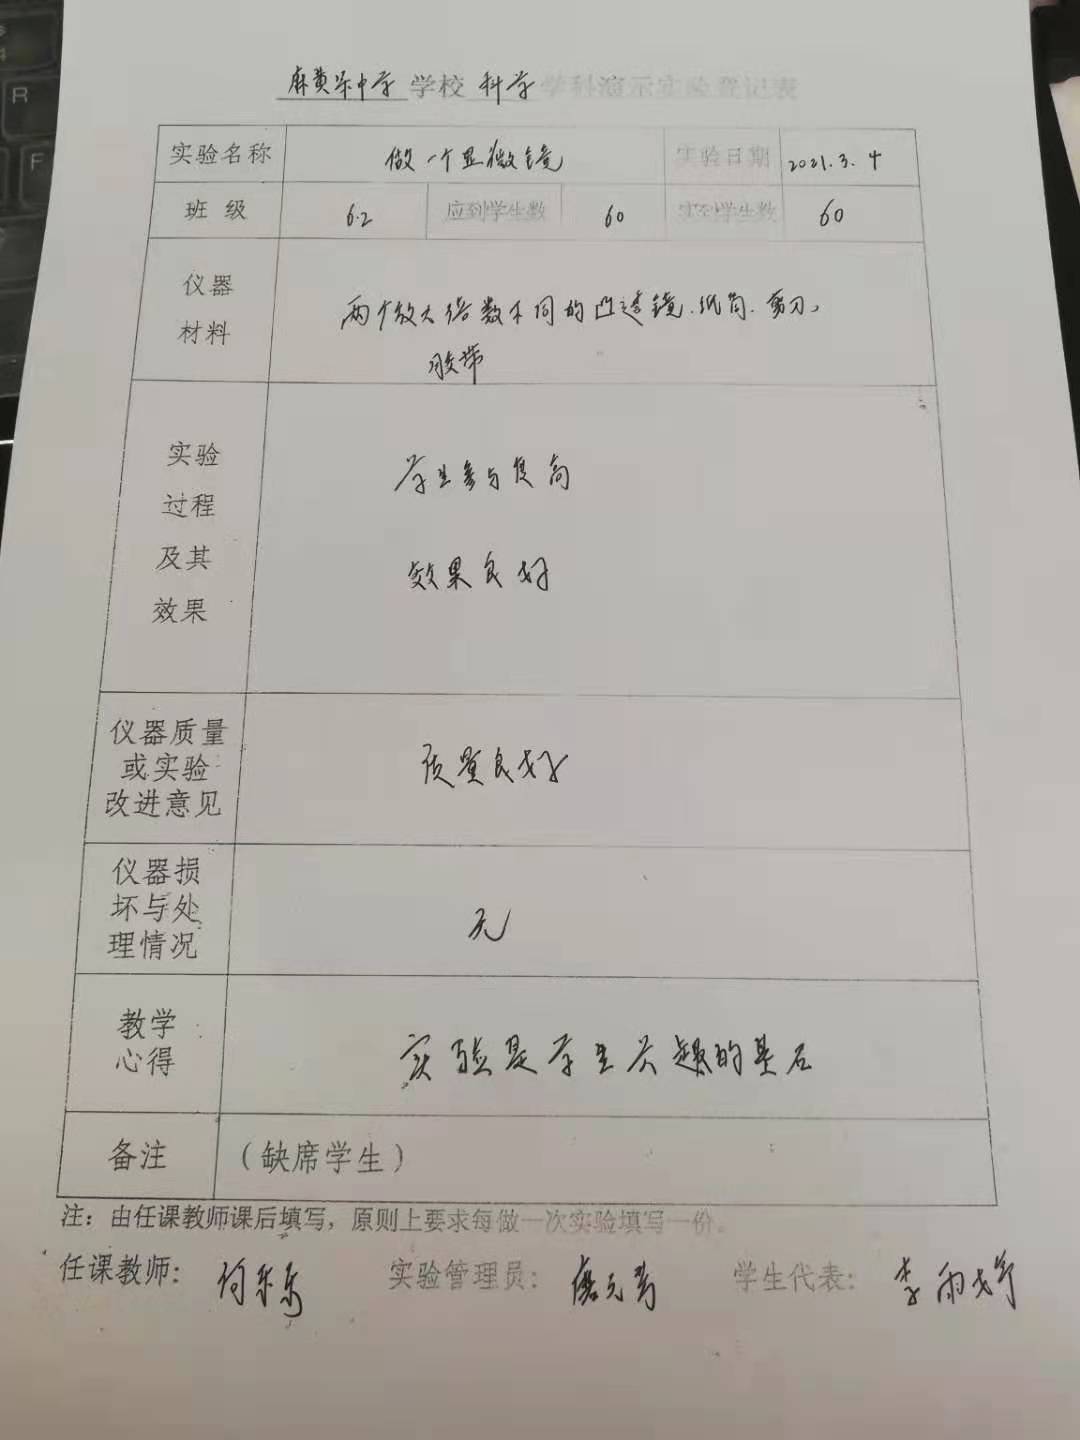 麻黄梁中学 学校 科学 学科演示实验登记表
实验名称 做一个显微镜 实验日期 2021.3.4
班 级 6.2 应到学生数 60 实到学生数 60
仪器
材料
两个放大倍数不同的凸透镜.纸筒.剪刀、
胶带
实验
过程
及其
效果
学生参与度高
效果良好
仪器质量
或实验
改进意见
质量良好
仪器损
坏与处
理情况
无
教学
心得
实验是学生兴趣的基石
备注 （缺席学生）
注：由任课教师课后填写，原则上要求每做一次实验填写一份。
任课教师： 何乐乐 实验管理员： 学生代表： 李雨婷